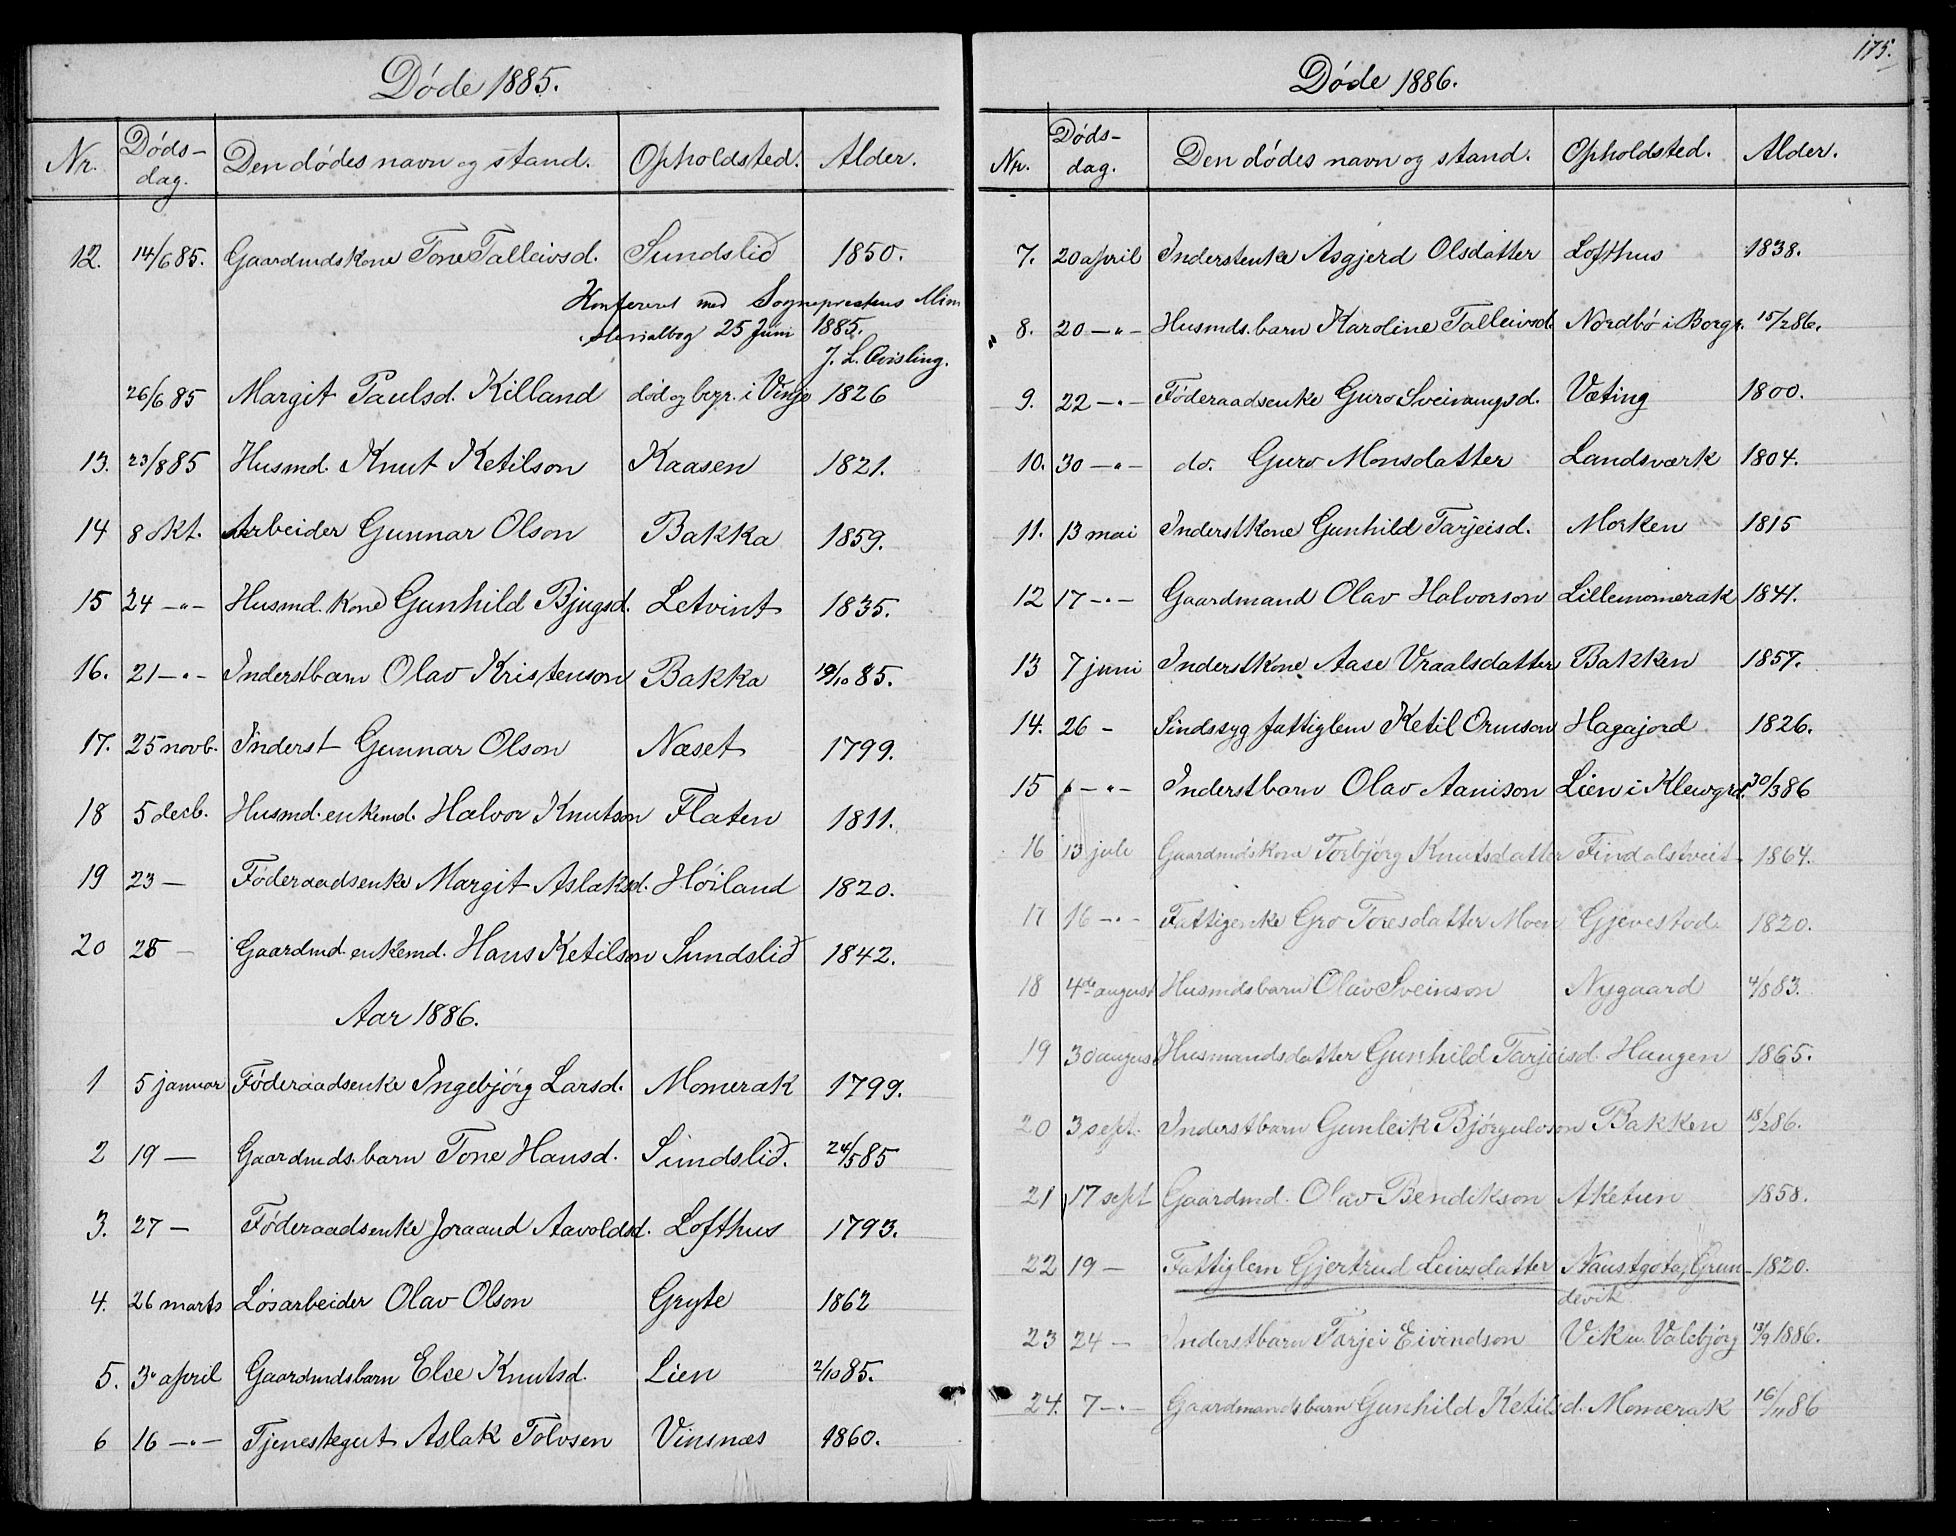 Døde 1885.
Nr. Døds-dag. Den dødes navn og stand. Opholdsted. Alder.
12. 14/6 85. Gaardmdskone Tone Talleivsd. Sundslid 1850.
Konfereret med Sogneprestens Mini
sterialbog 25 Juni 1885.
J. L. Qvisling.
26/6 85 Margit Paulsd. Killand død og begr. i Vinje 1826
13. 23/8 85 Husmd. Knut Ketilson Kaasen 1821.
14 8 okt. Arbeider Gunnar Olson Bakka 1859.
15 24 -"- Husmd. Kone Gunhild Bjugsd. Letvint 1835.
16. 21 -"- Inderstbarn Olav Kristenson Bakka 19/10 85.
17. 25 novb. Inderst Gunnar Olson Næset 1799.
18 5 decb. Husmd. enkemd. Halvor Knutson Flaten 1811.
19 23 — Føderaadsenke Margit Aslaksd. Høiland 1820.
20 28 — Gaardmd. enkemd. Hans Ketilson Sundslid 1842.
Aar 1886.
1 5 januar Føderaadsenke Ingebjørg Larsd. Momerak 1799.
2 19 — Gaardmds. barn Tone Hansd. Sundslid. 24/5 85
3. 27 — Føderaadsenke Joraand Aavoldsd. Lofthus 1793.
4. 26 marts Løsarbeider Olav Olson Gryte 1862
5. 3 april Gaardmdsbarn Else Knutsd. Lien 2/10 85.
6 16 -"- Tjenestegut Aslak Tolvsen Vinsnæs 1860.
175.
Døde 1886.
Nr. Døds-dag. Den dødes navn og stand. Opholdsted. Alder.
7. 20 april Inderstenke Asgjerd Olsdatter Lofthus 1838.
8. 20 -"- Husmds. barn Karoline Talleivsd. Nordbø i Borgr. 15/2 86.
9. 22 -"- Føderaadsenke Guro Sveinungsd. Væting 1800.
10. 30 -"- do. Guro Monsdatter Landsværk 1804.
11. 13 mai Inderstkone Gunhild Tarjeisd. Morken 1815
12 17 -"- Gaardmand Olav Halvorson Lillemomerak 1841.
13 7 juni Inderstkone Aase Vraalsdatter Bakken 1857.
14. 26 - Sindssyg fattiglem Ketil Ormson Hagajord 1826.
15 " -"- Inderstbarn Olav Aanison Lien i Klevgrd. 30/3 86
16 13 juli Gaardmdskone Torbjørg Knutsdatter Findalstveit 1864.
17 16 -"- Fattigenke Gro Toresdatter Moen Gjevestad 1820.
18 4de august Husmdsbarn Olav Sveinson Nygaard 4/8 83.
19 30 august Husmandsdatter Gunhild Tarjeisd. Haugen 1865.
20 3 sept. Inderstbarn Gunleik Bjørgulvson Bakken 18/2 86.
21 17 sept Gaardmd. Olav Bendikson Aketien 1858.
22 19 — Fattiglem Gjertrud Leivsdatter Naustgota, Grun- 1820.
devik
23 24 — Inderstbarn Tarjei Eivindson Vik u. Valebjørg 13/9 1886.
24. 7 -"- Gaardmandsbarn Gunhild Ketilsd. Momerak 16/11 86